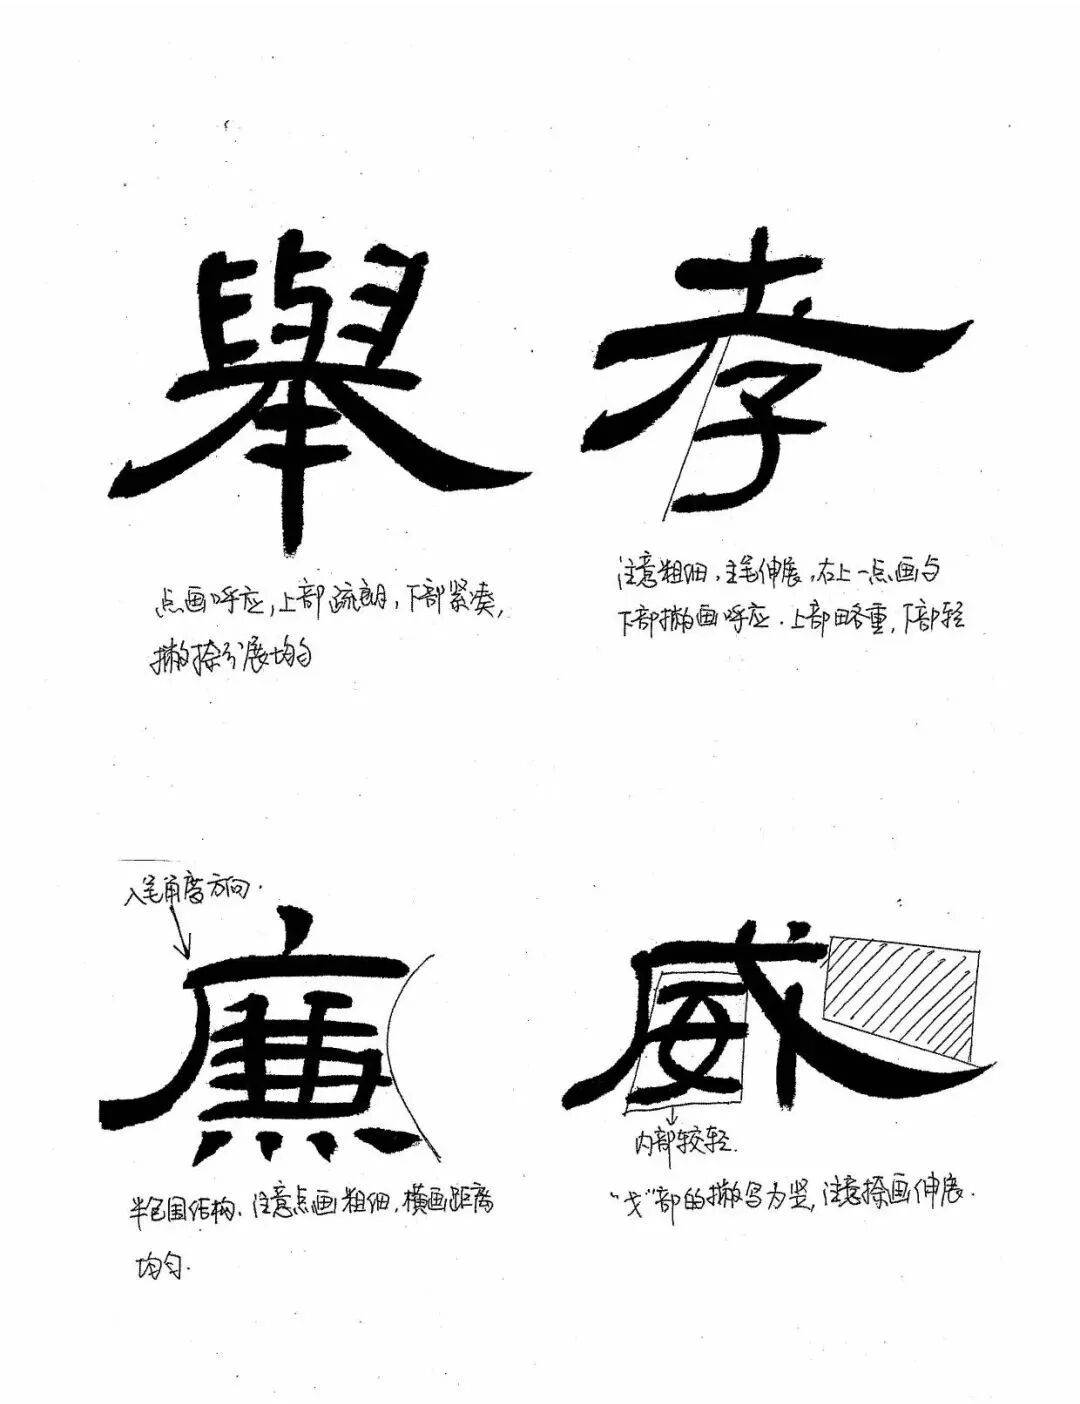 舉
孝
点画呼应,上部疏朗,下部紧凑,
撇捺分展均匀
注意粗细,主笔伸展,右上一点画与
下部撇画呼应.上部略重,下部轻
入笔角度方向.
廉
半包围结构.注意点画粗细,横画距离
均匀.
威
内部较轻.
"戈"部的撇写为竖,注意捺画伸展.